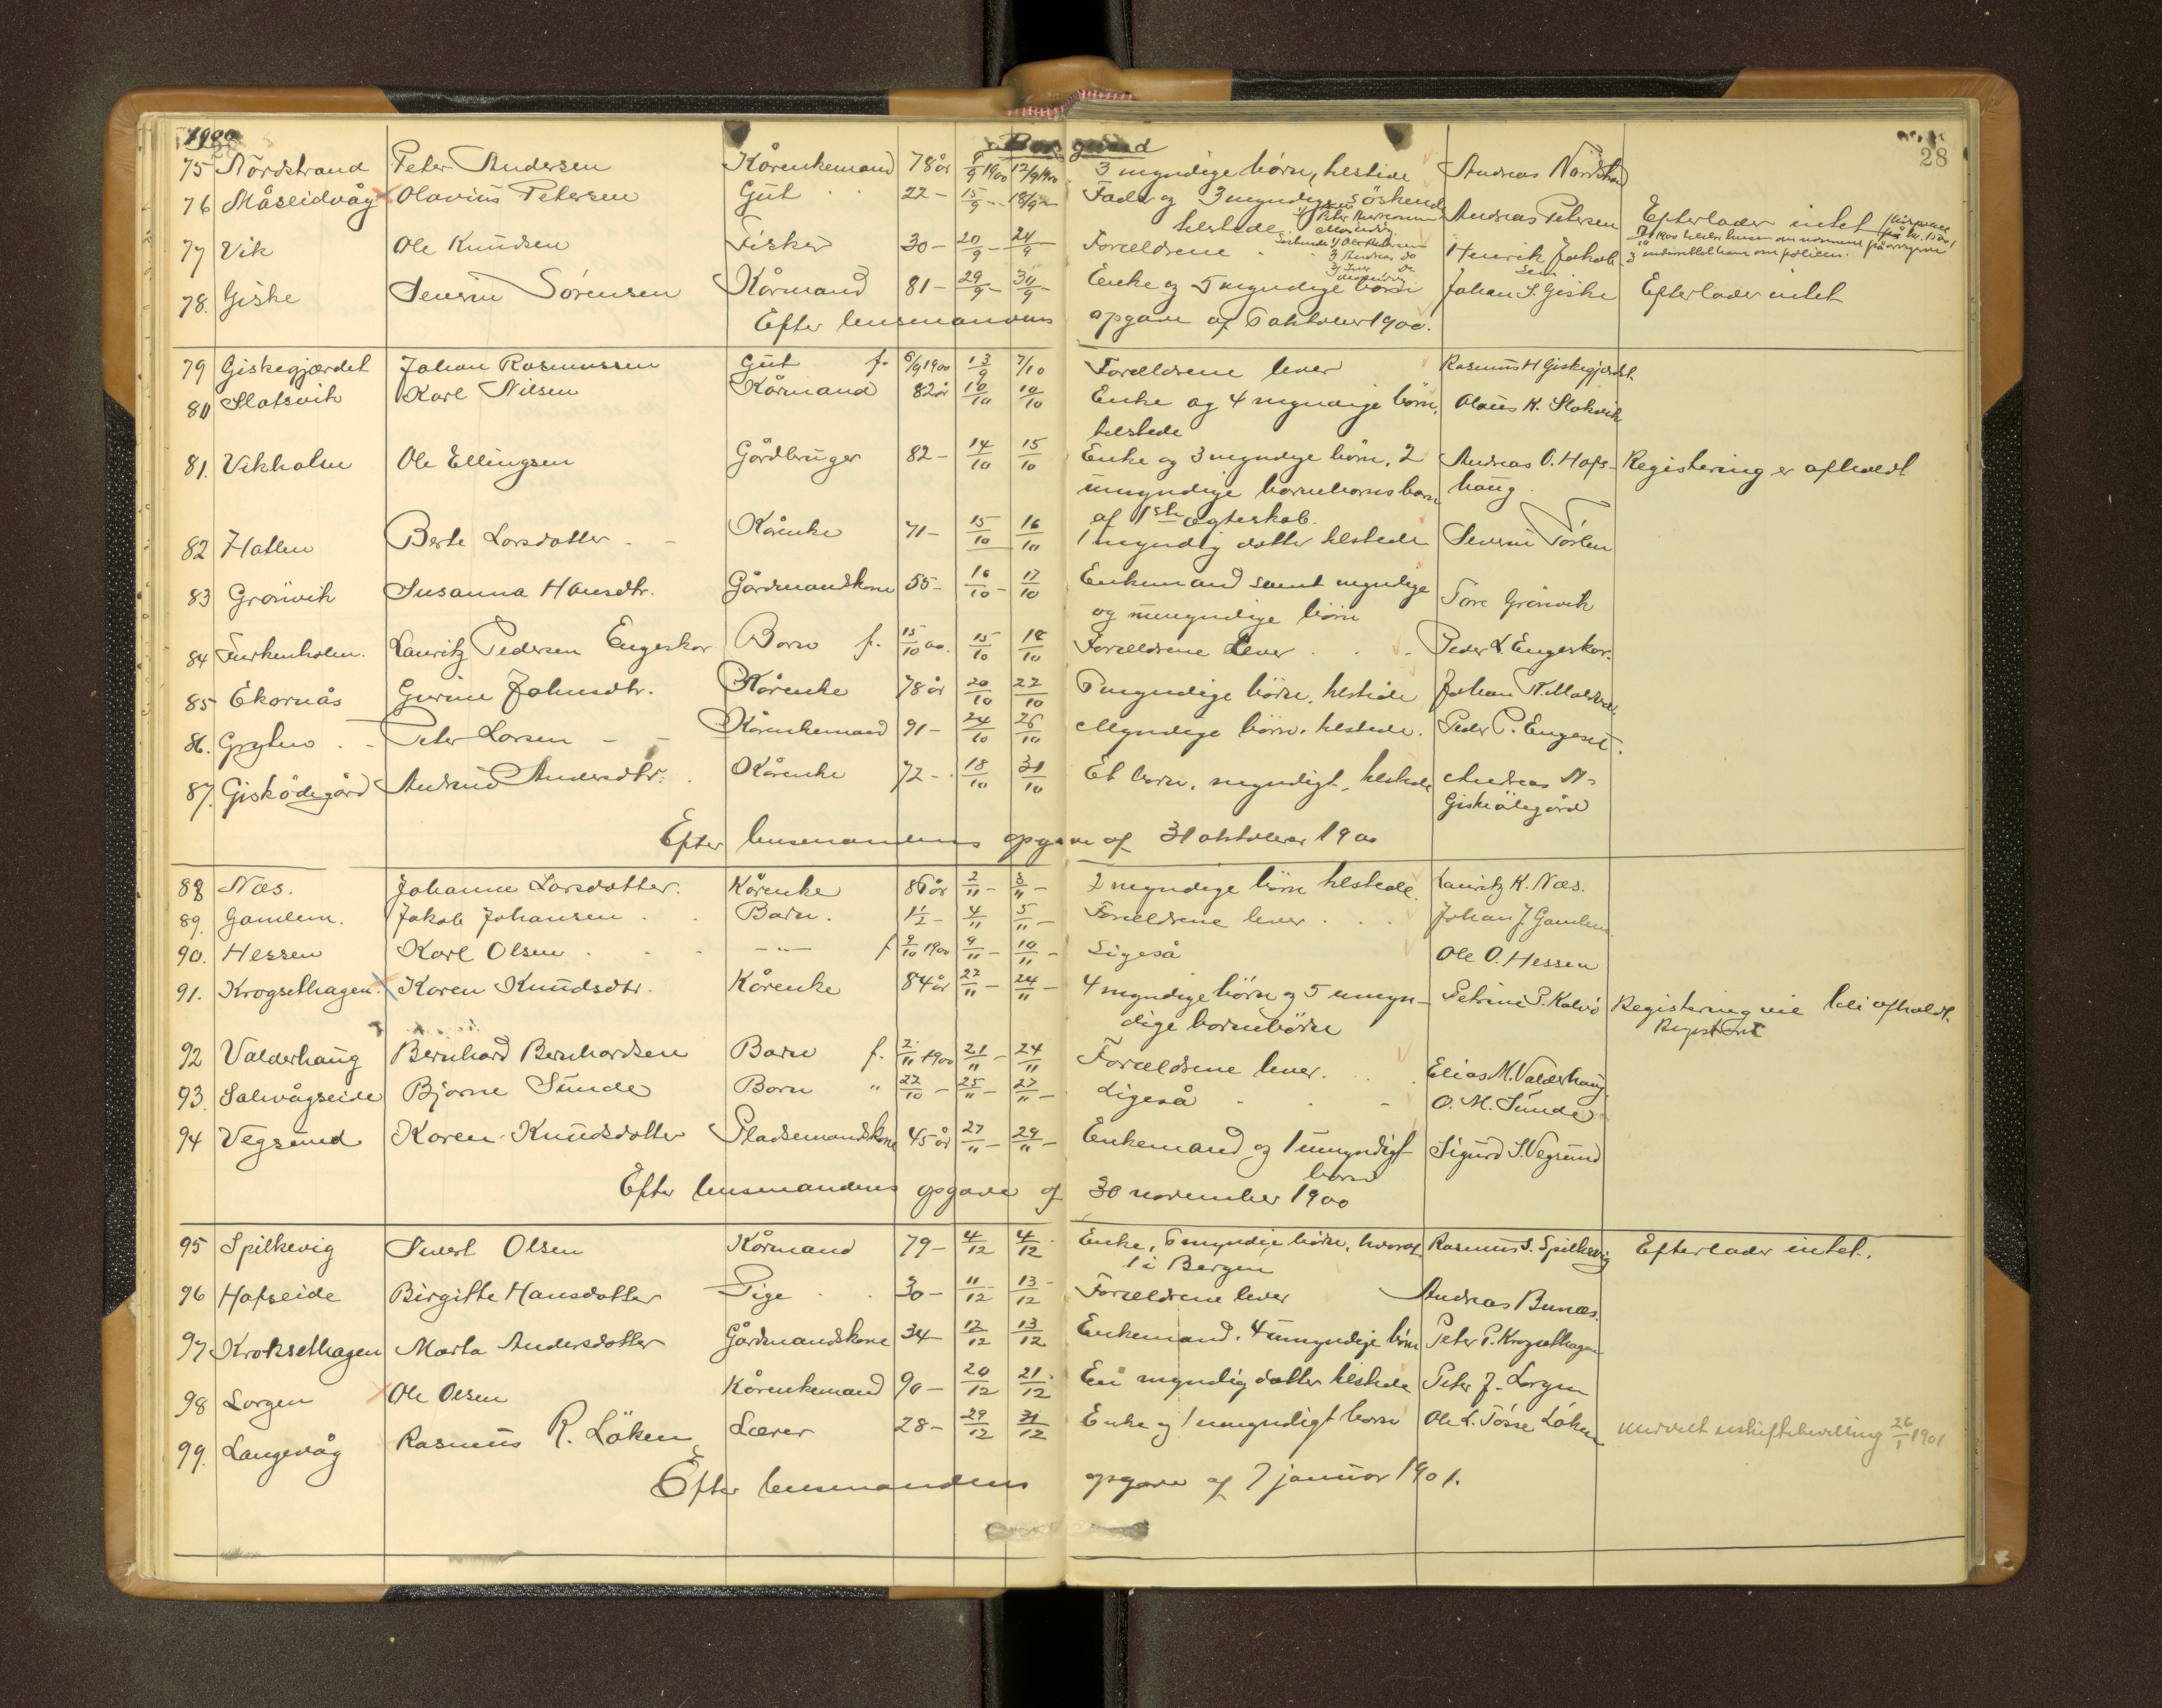 1900
Borgund
28
75 Nördstrand Peter Andersen Kårenkemand 78 år 8/9 1900 12/9 1900 3 myndige börn, tilstede Andreas Nördstrand
76 Måseidvåg Olavius Petersen Gut 22 - 15/9 - 18/9 - Fader og 3 myndige söskende Andreas Petersen Efterlader intet
tilstede
77 Vik Ole Knudsen Fisker 30 - 20/9 - 24/9 Forældrene Henrik Jakob-
sen
78. Giske Severin Sörensen Kårmand 81 - 29/9 - 30/9 - Enke og 5 myndige börn Johan S. Giske Efterlader intet
Efter lensmandens opgave af 6 oktober 1900.
79 Giskegjærdet Johan Rasmussen Gut f. 6/9 1900 13/9 7/10 Forældrene lever Rasmus H Giskegjerdet
80 Slatsvik Karl Nilsen Kårmand 82 år 10/10 10/10 Enke og 4 myndige börn, Olaus K. Slatsvik
tilstede
81. Vikholm Ole Ellingsen Gårdbruger 82 - 14/10 15/10 Enke og 3 myndige börn, 2 Andreas O. Hofs- Registering er afholdt
umyndige barnebarns barn haug
af 1ste ægteskab.
82 Hatlen Berte Larsdatter Kårenke 71 - 15/10 16/10 1 myndig datter tilstede Severin Törlen
83 Grönvik Susanna Hansdtr. Gårdmandskone 55 - 16/10 - 17/10 Enkemand samt myndige Tore Grönvik
og umyndige börn
84 Furkenholm. Lauritz Pedersen Engeskar Barn f. 15/10 00. 15/10 18/10 Forældrene lever Peder L. Engeskar.
85 Ekornås Gurine Johnsdtr. Kårenke 78 år 20/10 22/10 6 myndige börn, tilstede Johan K.
86. Gryten Peter Larsen Kårenkemand 91 - 24/10 26/10 Myndige börn, tilstede. Peder P. Engeset.
87. Gisködegård Andrine Andersdtr. Kårenke 72 - 18/10 31/10 Et barn, myndigt, tilstede Andreas A-
Giskeödegård
Efter lensmandens opgave af 31 oktober 1900
88 Næs. Johanne Larsdatter. Kårenke 86 år 2/11 - 3/11 - 2 myndige börn tilstede. Lauritz K. Næs.
89. Gamlem. Jakob Johansen Barn. 1 1/2 - 4/11 5/11 - Forældrene lever Johan J. Gamlem.
90. Hessen Karl Olsen -"- f 9/10 1900 9/11 - 10/11 - Ligeså Ole O. Hessen
91. Krogsethagen. Karen Knudsdtr. Kårenke 84 år 22/11 - 24/11 - 4 myndige börn og 5 umyn- Petrine P. Kalvö Registering vil bli afholdt.
dige barnebörn
92 Valderhaug Bernhard Bernhardsen Barn f. 2/11 1900 21/11 - 24/11 Forældrene lever. Elias M. Valderhaug
93. Salwågseide Bjarne Sunde Barn " 22/10 - 25/11 - 27/11 - Ligeså O. M. Sunde
94 Vegsund Karen Knudsdatter Pladsemandskone 45 år 27/11 - 29/11 - Enkemand og 1 umyndigt Sigurd S. Vegsund
barn
Efter lensmandens opgave af 30 november 1900
95 Spilkevig Sivert Olsen Kårmand 79 - 4/12 4/12 Enke, 6 myndige börn, hvoraf Rasmus S. Spilkevig Efterlader intet.
1 i Bergen
96 Hafseide Birgitte Hansdatter Pige 30 - 11/12 13/12 - Forældrene lever Andreas Bunæs.
97 Kroksethagen Marta Andersdatter Gårdmandskone 34 - 12/12 13/12 Enkemand. 4 umyndige börn Peter P. Krogsethagen
98 Lorgen Ole Olsen Kårenkemand 90 - 20/12 21/12 En myndig datter tilstede Peter J. Lorgen
99. Langevåg Rasmus R. Löken Lærer 28 - 29/12 31/12 Enke og 1 umyndigt barn Ole L. Tösse Löken meddelt uskiftebevilling 26/1 1901
Efter lensmandens opgave af 7 januar 1901.